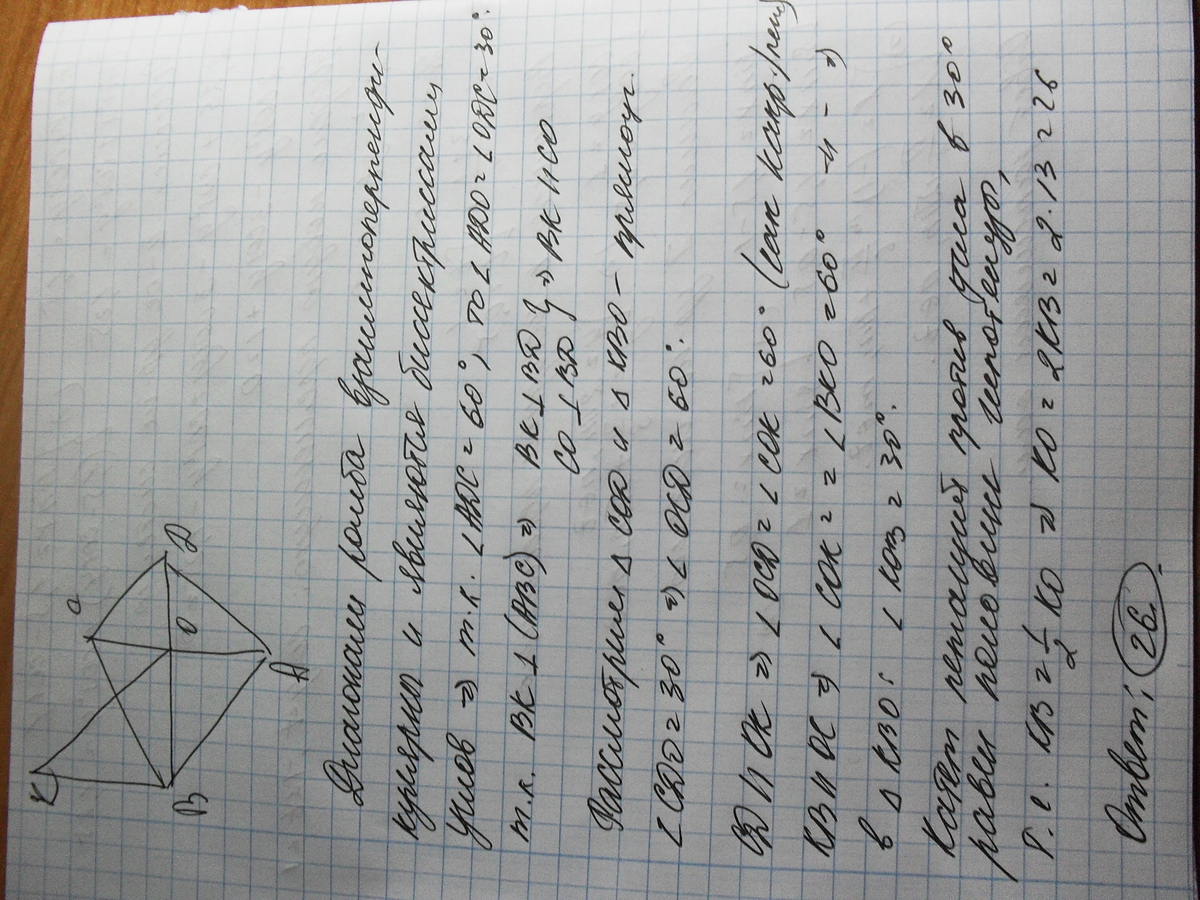 K
C
D
O
B
A
Диагонали ромба взаимноперпенди-
кулярны и являются биссектрисами
углов ⇒ т.к. ∠ADC = 60°, то ∠ADO = ∠ODC = 30°.
т.к. BK ⊥ (ABC) ⇒ BK ⊥ BD } ⇒ BK ∥ CO
CO ⊥ BD
Рассмотрим Δ COD и Δ KBO – прямоуг.
∠CDO = 30° ⇒ ∠ OCD = 60°.
CD ∥ OK ⇒ ∠ OCD = ∠ COK = 60° (как накр.
KB ∥ OC ⇒ ∠ COK = ∠ BKO = 60° –//– ⇒
в Δ KBO: ∠ KOB = 30°.
Катет лежащий против угла в 30°
равен половине гипотенузы,
т.е. KB = 1/2 KO ⇒ KO = 2KB = 2·13 = 26
Ответ: 26.